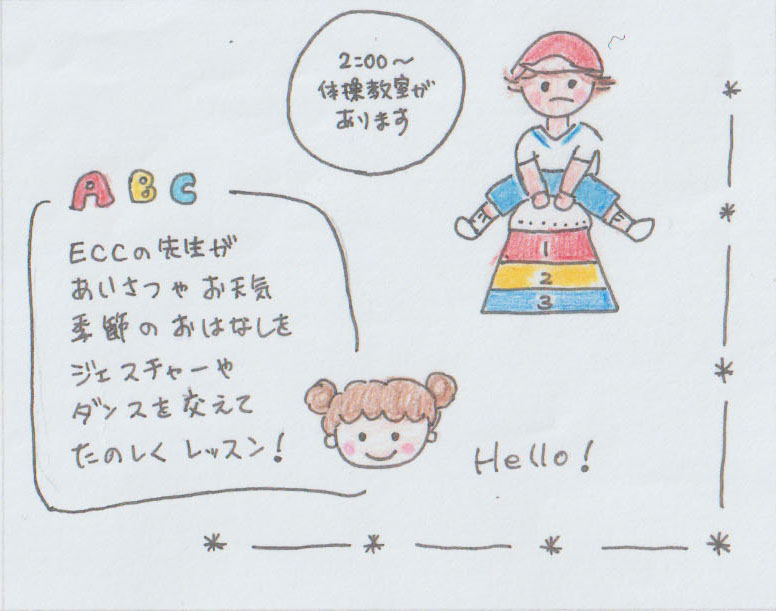 2:00〜
体操教室が
あります
1
2
3
ABC
ECCの先生が
あいさつや お天気
季節の おはなしを
ジェスチャーや
ダンスを交えて
たのしく レッスン!
Hello!